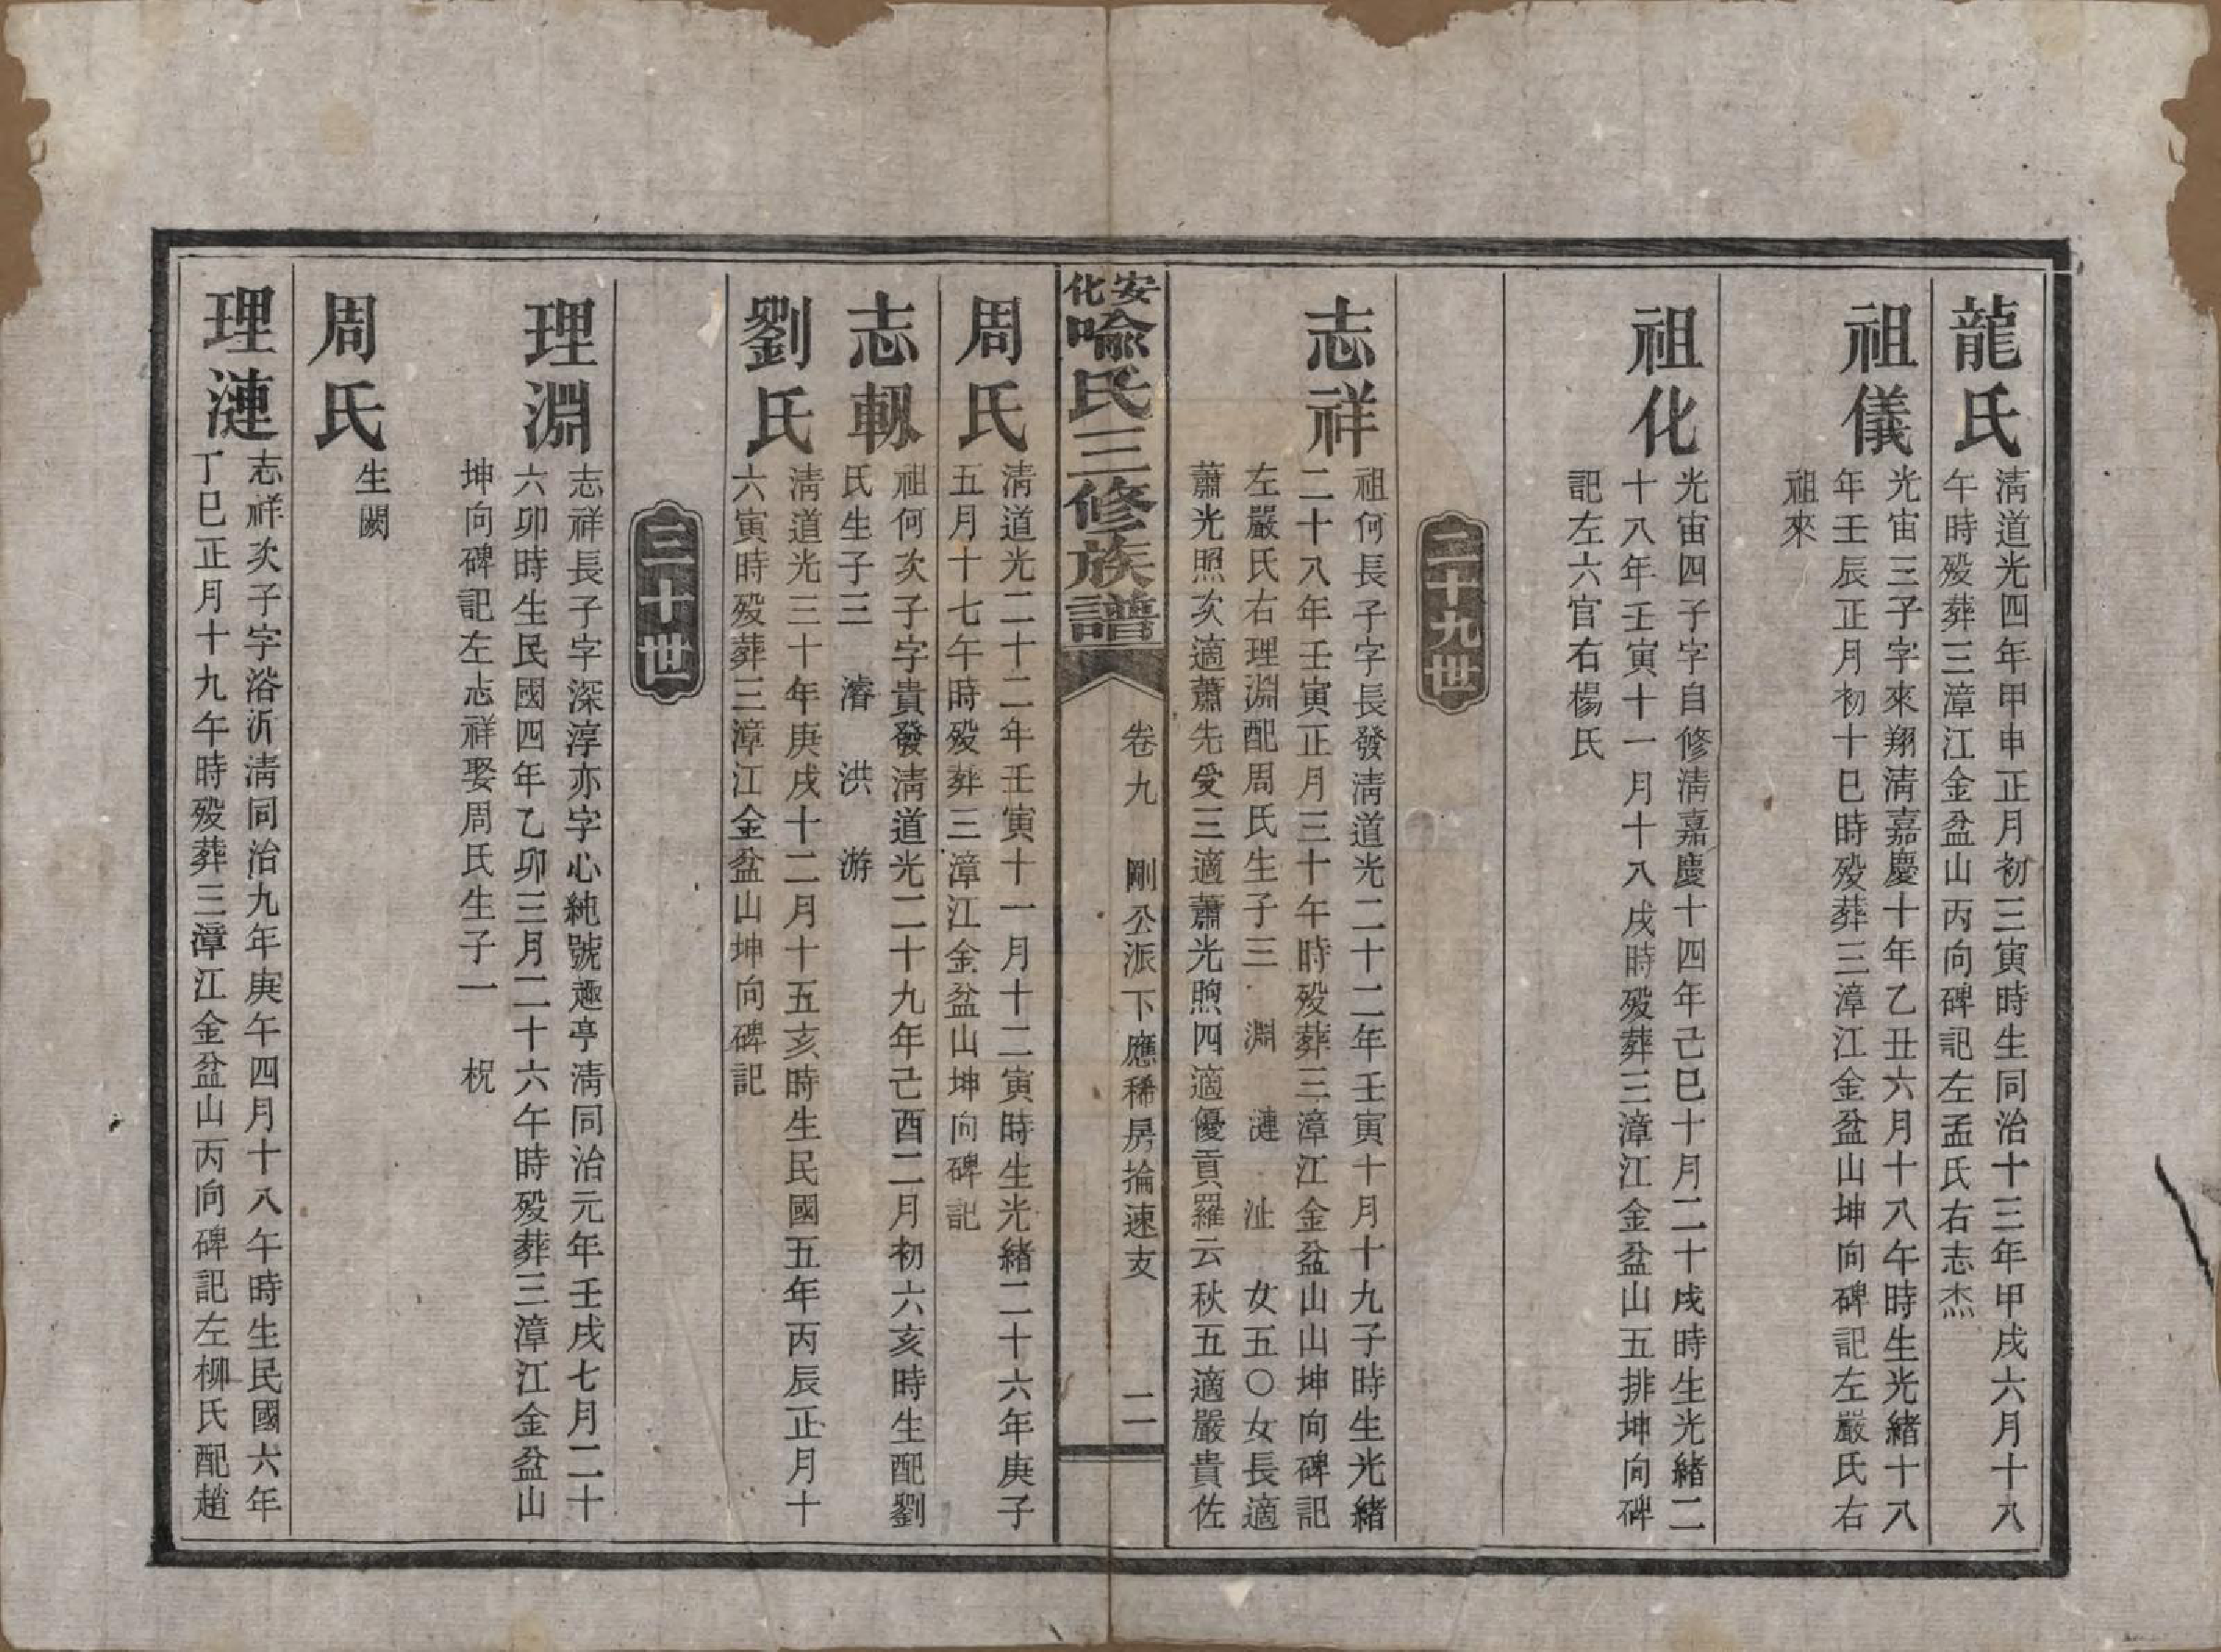 龍氏
清道光四年甲申正月初三寅時生同治十三年甲戌六月十八
午時殁葬三漳江金盆山丙向碑記左孟氏右志杰
祖儀
光宙三子字來翔清嘉慶十年乙丑六月十八午時生光緒十八
年壬辰正月初十巳時殁葬三漳江金盆山坤向碑記左嚴氏右
祖來
祖化
光宙四子字自修清嘉慶十四年己巳十月二十戌時生光緒二
十八年壬寅十一月十八戌時殁葬三漳江金盆山五排坤向碑
記左六官右楊氏
二十九世
志祥
祖何長子字長發清道光二十二年壬寅十月十九子時生光緒
二十八年壬寅正月三十午時殁葬三漳江金盆山山坤向碑記
左嚴氏右理淵配周氏生子三 淵 漣 沚 女五〇女長適
蕭光照次適蕭先受三適蕭光煦四適優貢羅云秋五適嚴貴佐
安化喩氏三修族譜
卷九 剛公派下應稀房掄速支 二
周氏
清道光二十二年壬寅十一月十二寅時生光緒二十六年庚子
五月十七午時殁葬三漳江金盆山坤向碑記
志軔
祖何次子字貴發清道光二十九年己酉二月初六亥時生配劉
氏生子三 濬 洪 游
劉氏
清道光三十年庚戌十二月十五亥時生民國五年丙辰正月十
六寅時殁葬三漳江金盆山坤向碑記
三十世
理淵
志祥長子字深淳亦字心純號趣亭清同治元年壬戌七月二十
六卯時生民國四年乙卯三月二十六午時殁葬三漳江金盆山
坤向碑記左志祥娶周氏生子一 柷
周氏
生闕
理漣
志祥次子字浴沂清同治九年庚午四月十八午時生民國六年
丁巳正月十九午時殁葬三漳江金盆山丙向碑記左柳氏配趙